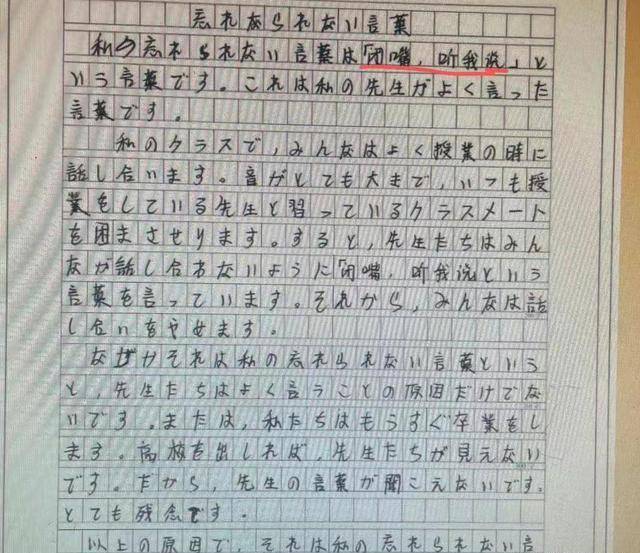 忘れなられない言葉
私の忘れられない言葉は「闭嘴，听我说」と
いう言葉です。これは私の先生がよく言った
言葉です。
私のクラスで，みんなはよく授業の時に
話し合います。音がとても大まで，いつも授
業をしている先生と習っているクラスメート
を困まさせります。すると，先生たちはみん
なが話し合わないように「闭嘴，听我说という
言葉を言っています。それから，みんなは話
し合いをやめます。
なぜかそれは私の忘れられない言葉という
と，先生たちはよく言うことの原因だけでな
いです。または，私たちはもうすぐ卒業をし
ます。高校を出しれば，先生たちが見えない
です。だから，先生の言葉が聞こえないです。
とても残念です。
以上の原因で，それは私の忘れられない言